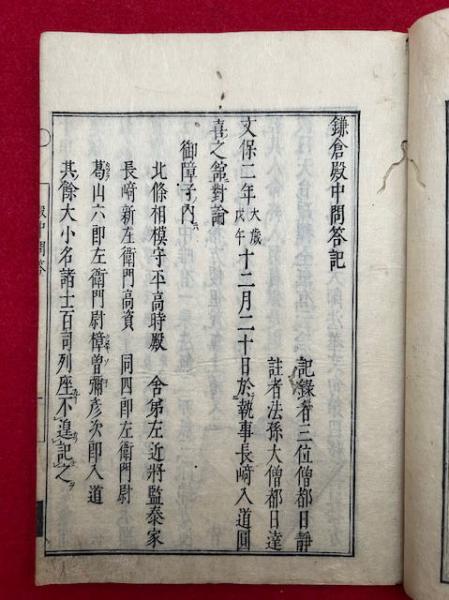 鎌倉殿中問答記
記録者三位僧都日靜
註者法孫大僧都日達
文保二年大歲戊午十二月二十日於執事長﨑入道圓
喜之舘對論
御障子ノ内
北條相模守平高時殿 舍弟左近將監泰家
長﨑新左衛門高資 同四郎左衛門尉
葛山六郎左衛門尉樟曽彌彦次郎入道
其餘大小名諸士百司列座不遑記之
殿中問答